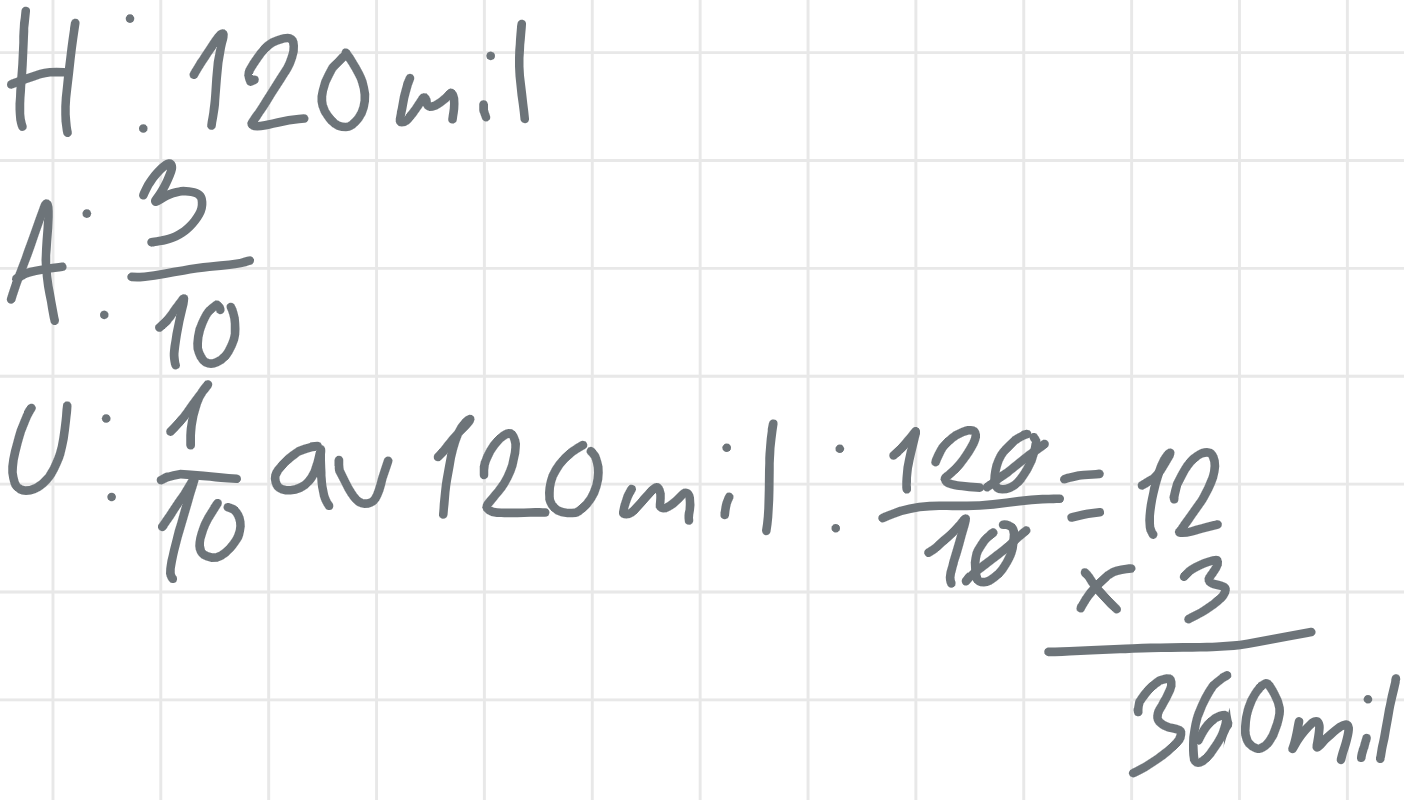 H: 120mil
A: 3/10
U: 1/10 av 120mil: 120/10 = 12
x 3
360mil